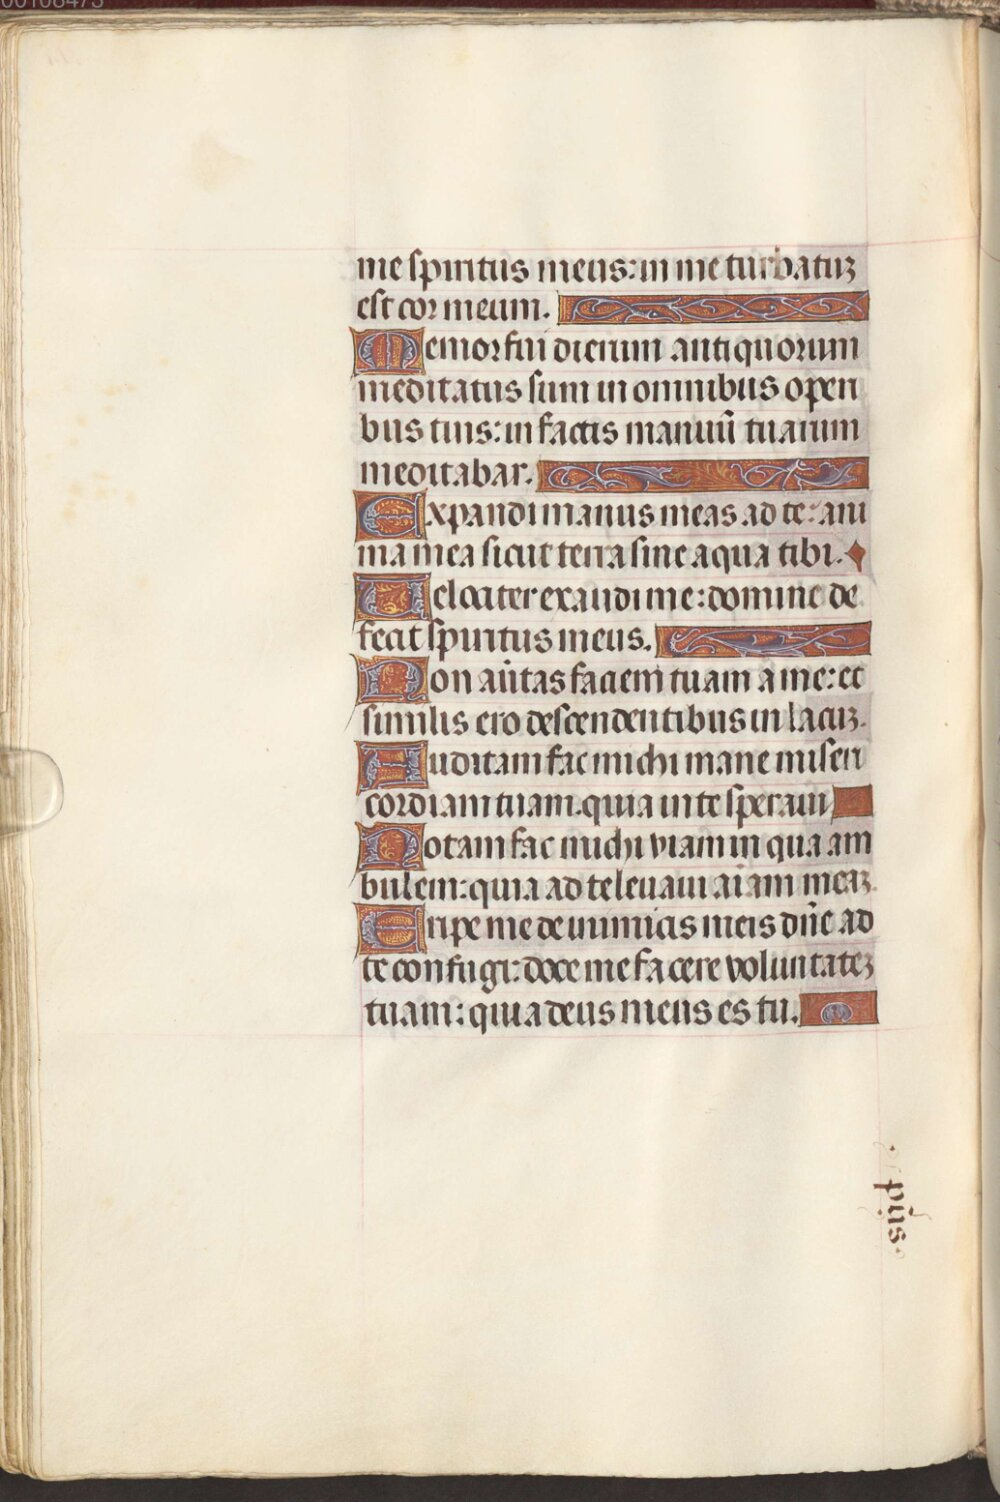 me spiritus meus: in me turbatuʒ
est cor meum.
Memor fui dierum antiquorum
meditatus sum in omnibus operi
bus tuis: in factis manuū tuarum
meditabar.
Expandi manus meas ad te: ani
ma mea sicut terra sine aqua tibi.
Velociter exaudi me: domine de
fecit spiritus meus.
Non au̇tas faciem tuam a me: et
similis ero descendentibus in lacuʒ.
Auditam fac michi mane miseri
cordiam tuam. quia in te speraui
Notam fac michi viam in qua am
bulem: quia ad te leuaui aiam meaʒ.
Eripe me de inimicis meis dn̄e ad
te confugi: doce me facere voluntateʒ
tuam: quia deus meus es tu.